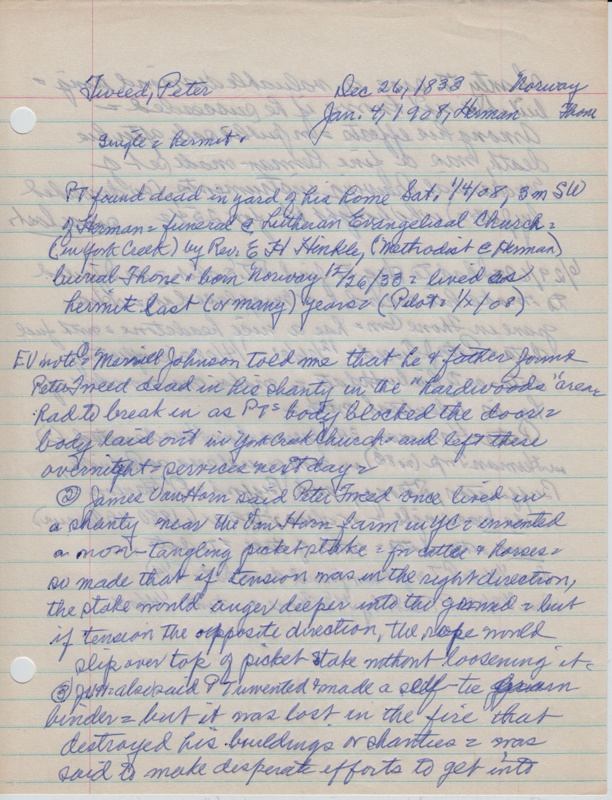 Tweed, Peter Dec 26, 1833 Norway
Jan. 4, 1908, Herman Thone
Single = hermit.
PT found dead in yard of his home Sat. 1/4/08, 3 m SW
of Herman = funeral @ Lutheran Evangelical Church =
(in York Creek) by Rev. E H Hinkley (Methodist @ Herman)
burial Thone = born Norway 12/26/33 = lived as
hermit last (or many) years = (Pilot = 1/x/08)
EV note = ① Merrill Johnson told me that he & father found
Peter Tweed dead in his shanty in the "hardwoods" area =
had to break in as PT = body blocked the door =
body laid out in York Creek Church = and left there
overnight = services next day =
② James Van Horn said Peter Tweed once lived in
a shanty near the Van Horn farm in YC = invented
a non-tangling picket stake = for cattle & horses =
so made that if tension was in the right direction,
the stake would auger deeper into the ground = but
if tension the opposite direction, the rope would
slip over top of picket stake without loosening it =
③ JVH = also said PT invented & made a self-tie grain
binder = but it was lost in the fire that
destroyed his buildings or shanties = was
said to make desperate efforts to get into